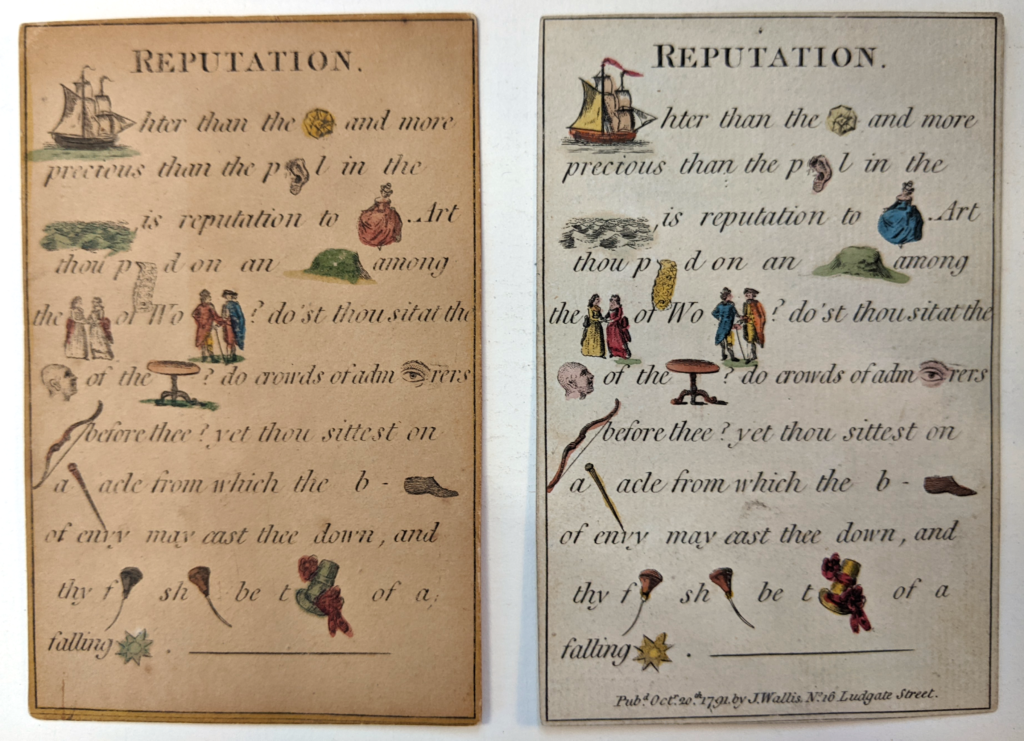 REPUTATION.
hter than the and more
precious than the p l in the
is reputation to . Art
thou p d on an among
the of Wo ? do'st thou sit at the
of the ? do crowds of adm rers
before thee? yet thou sittest on
a acle from which the b -
of envy may cast thee down, and
thy f sh be t of a
falling .
REPUTATION.
hter than the and more
precious than the p l in the
,is reputation to . Art
thou p d on an among
the of Wo ? do'st thou sit at the
of the ? do crowds of adm rers
before thee? yet thou sittest on
a acle from which the b -
of envy may cast thee down, and
thy f sh be t of a
falling .
Pub.d Oct.r 20.th 1791. by J. Wallis. No. 16 Ludgate Street.